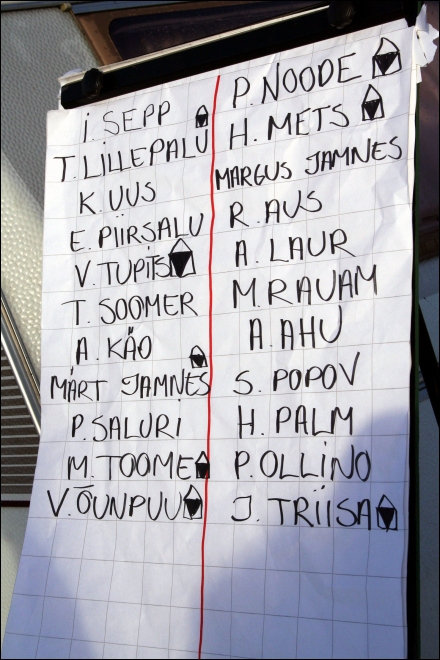 I. SEPP
T. LILLEPALU
K. UUS
E. PIIRSALU
V. TUPITS
T. SOOMER
A. KÄO
MÄRT JAMNES
P. SALURI
M. TOOME
V. ÕUNPUU
P. NOODE
H. METS
MARGUS JAMNES
R. AUS
A. LAUR
M. RAVAM
A. AHU
S. POPOV
H. PALM
P. OLLINO
J. TRIISA